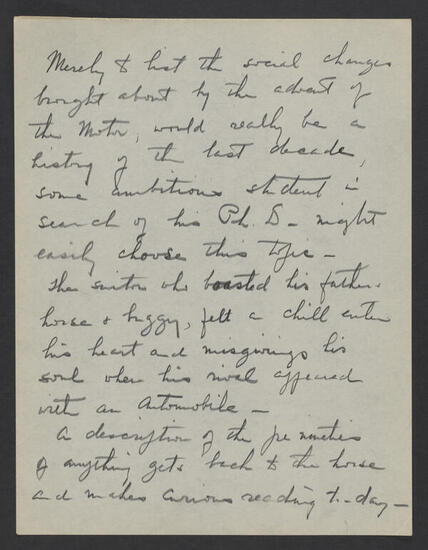 Merely to list the social changes
brought about by the advent of
the Motor, would really be a
history of the last decade,
some ambitious student in
search of his Ph. D - might
easily choose this topic -
The suitor who boasted his father's
horse & buggy, felt a chill enter
his heart and misgivings his
soul when his rival appeared
with an Automobile -
A description of the
of anything gets back to the horse
and makes curious reading to-day -